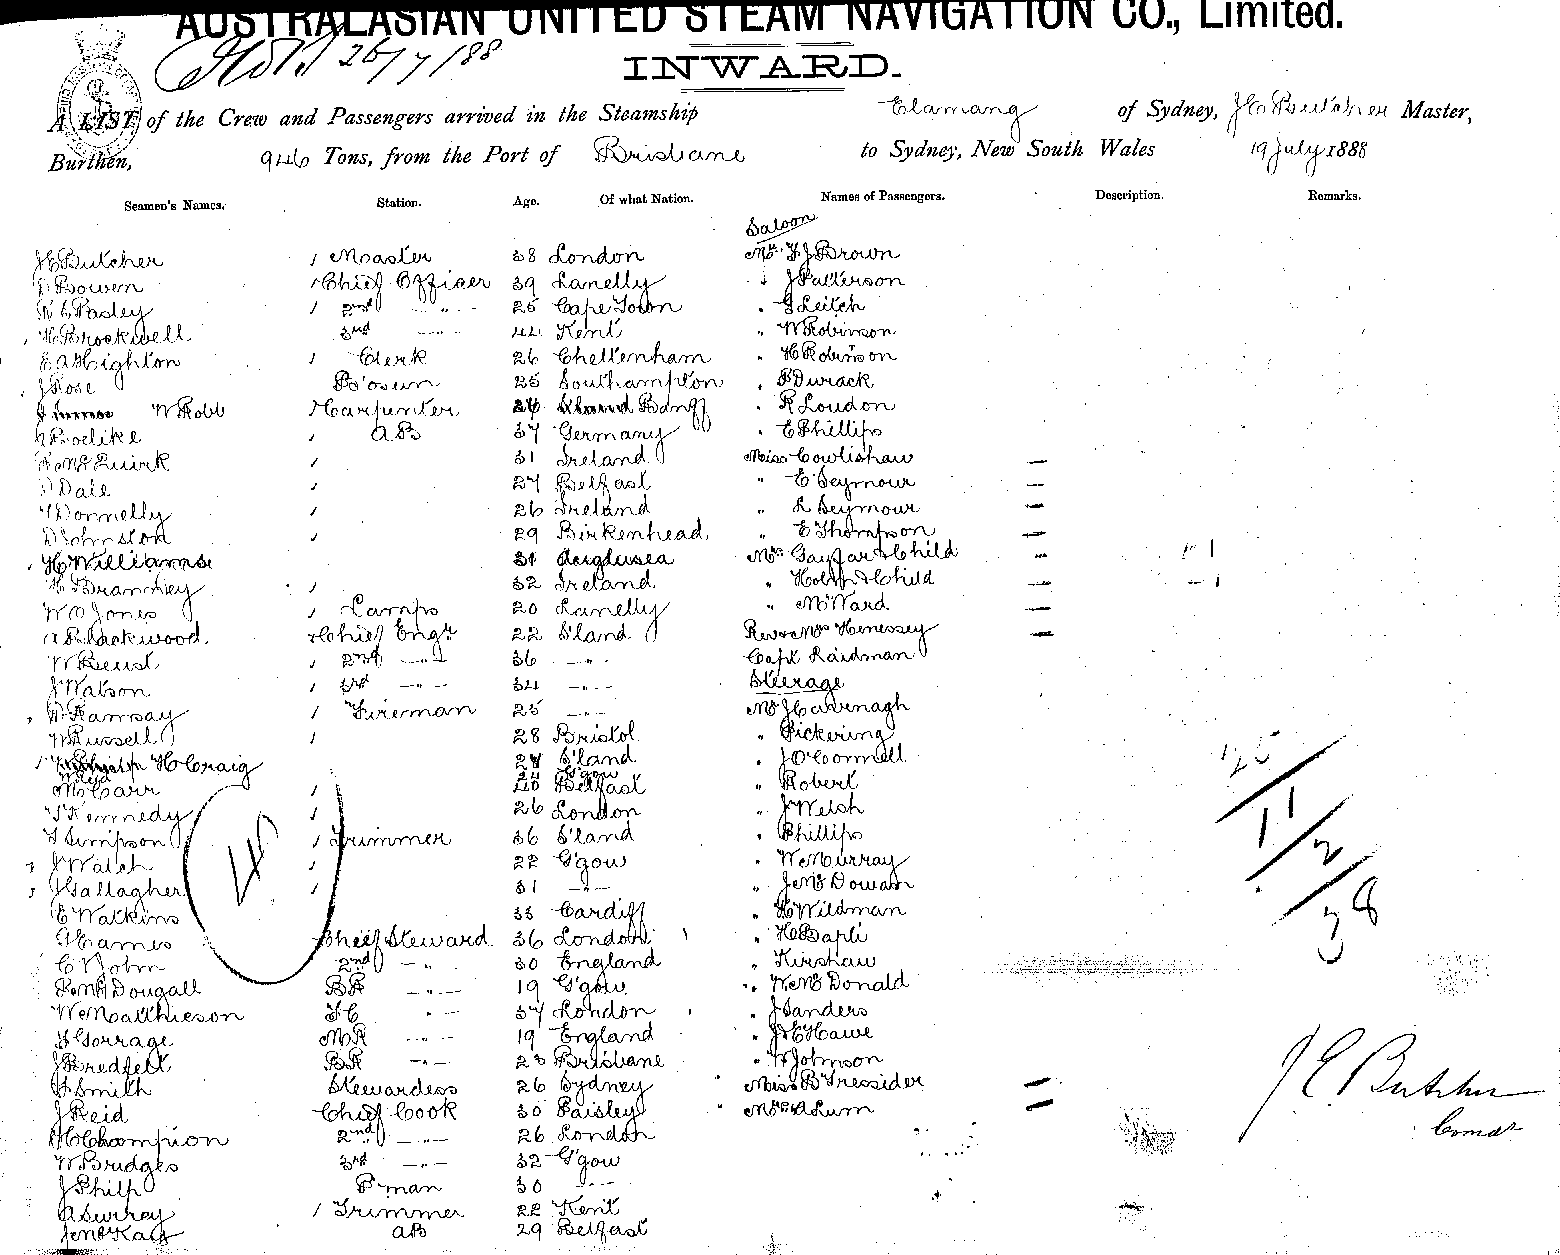 AUSTRALASIAN UNITED STEAM NAVIGATION CO., Limited.
26/7/88
INWARD.
A LIST of the Crew and Passengers arrived in the Steamship Elamang of Sydney, J E Butcher Master,
Burthen, 946 Tons, from the Port of Brisbane to Sydney, New South Wales 19 July 1888
Seamen's Names. Station. Age. Of what Nation. Names of Passengers. Description. Remarks.
Saloon
J E Butcher 1 Master 38 London Mr F J Brown
Bowen 1 Chief Officer 39 Lanelly " J Patterson
Pasley 1 2nd —"— 25 Cape Town " G Leitch
H Brockwell 3rd —"— 44 Kent " W Robinson
E A Highton 1 Clerk 26 Cheltenham " H Robinson
J Rose Bosun 25 Southampton " P Durack
W Robb 1 Carpenter 26 Banff " R Loudon
Boelike 1 AB 37 Germany " E Phillips
McQuirk 1 31 Ireland Miss Cowlishaw —
Dale 1 27 Belfast " E Seymour —
Donnelly 1 26 Ireland " L Seymour —
D Johnston 1 29 Birkenhead " E Thompson —
H Williams 31 Mrs & Child — " 1
H Branney 1 32 Ireland " & Child — — 1
W O Jones 1 Lamps 20 Lanelly " McWard —
A Blackwood 1 Chief Engr 22 S'land Rev & Mrs Henessey —
W Beust 1 2nd —"— 36 —"— Capt Laidman
J Watson 1 3rd —"— 34 —"— Steerage
D Ramsay 1 Fireman 25 —"— Mr J Cavenagh
W Russell 1 28 Bristol " Pickering
1 H Craig 24 S'land " J O'Connell
24 G'gow
M Carr 1 40 Belfast " Robert
T Kennedy 1 26 London " J Welsh
Simpson 1 Trimmer 36 S'land " Phillips
J Walsh 1 22 G'gow " W Murray
J Gallagher 1 31 —"— " J McDowan
E Watkins 33 Cardiff " H Wildman
Eames Chief Steward 36 London " H Bapti
C John 2nd —"— 30 England " Kirshaw
McDougall BR —"— 19 G'gow " W McDonald
W Matthieson FC —"— 37 London " J Sanders
Gorrage MR —"— 19 England " J E Hawe
J Bredfelt BR —"— 23 Brisbane " W Johnson
Smith Stewardess 26 Sydney Miss B Tressider —
J Reid Chief Cook 30 Paisley " Mrs A Lum —
H Champion 2nd —"— 26 London
W Bridges 3rd —"— 32 G'gow
J Philp P'man 30 —"—
A Surray 1 Trimmer 22 Kent
J McKay AB 29 Belfast
4
125
11
2
38
J E Butcher
Comdr